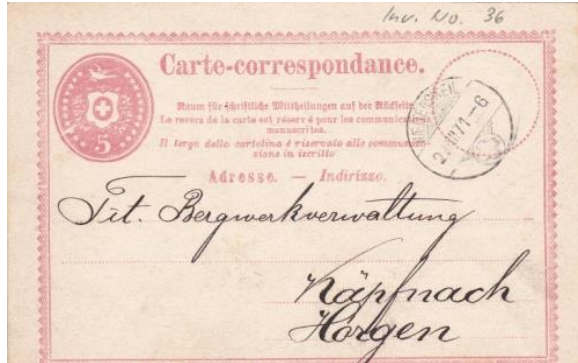 Inv. No. 36
Carte-correspondance.
Raum für schriftliche Mittheilungen auf der Rückseite
Le revers de la carte est réservé pour les communications
manuscrites.
Il tergo della cartolina è riservato alle communi-
zione in iscritto
Adresse. — Indirizzo.
5
71-6
Tit. Bergwerkverwaltung
Käpfnach
Horgen